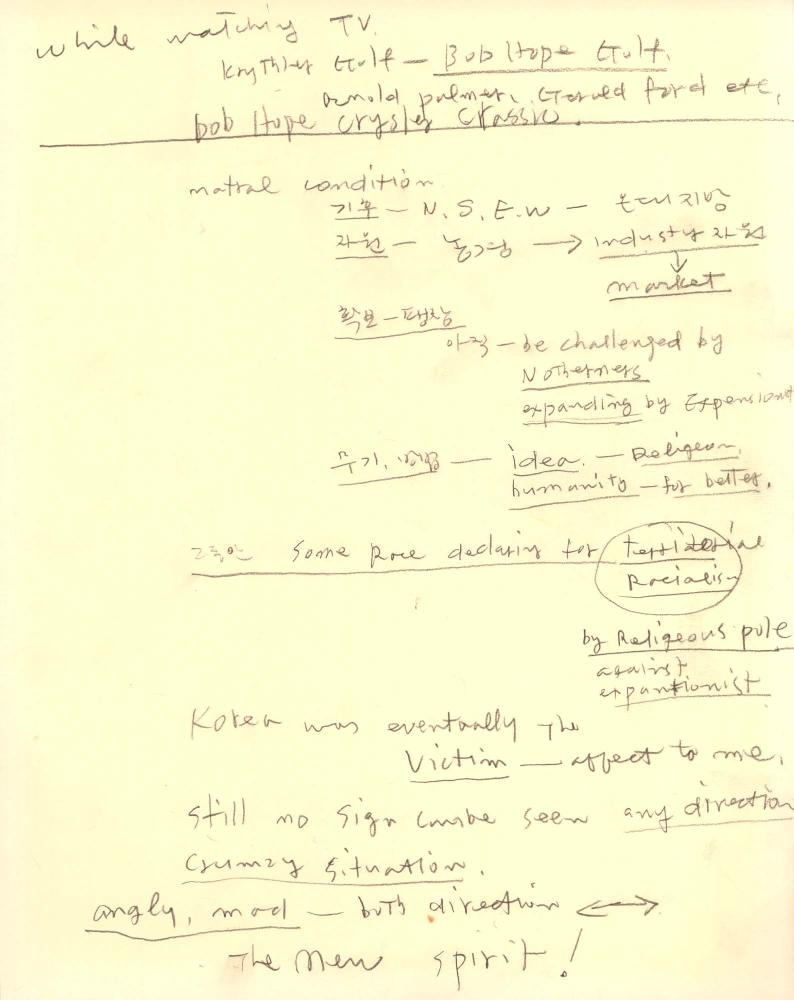 while watching TV.
Krythler Gulf — Bob Hope Gulf.
Arnold palmer, Gerued ford etc,
bob Hope Crysler Crassic.
matral condition
기후 — N. S. E. W — 온대지방
자원 — 농경 → industy 자원
↓
market
확보 — 팽창
아직 — be challenged by
Notherners
expanding by Expensionist
무기, — idea. — Religeon,
humanity — for better,
그동안 Some Race declaring for territorial
Racialism
by Religeous pole
against
expantionist
Korea was eventually The
Victim — affect to me,
still no sign canbe seen any direction
Crumzy situation.
angly, mad — both direction ↔
The New spirit!